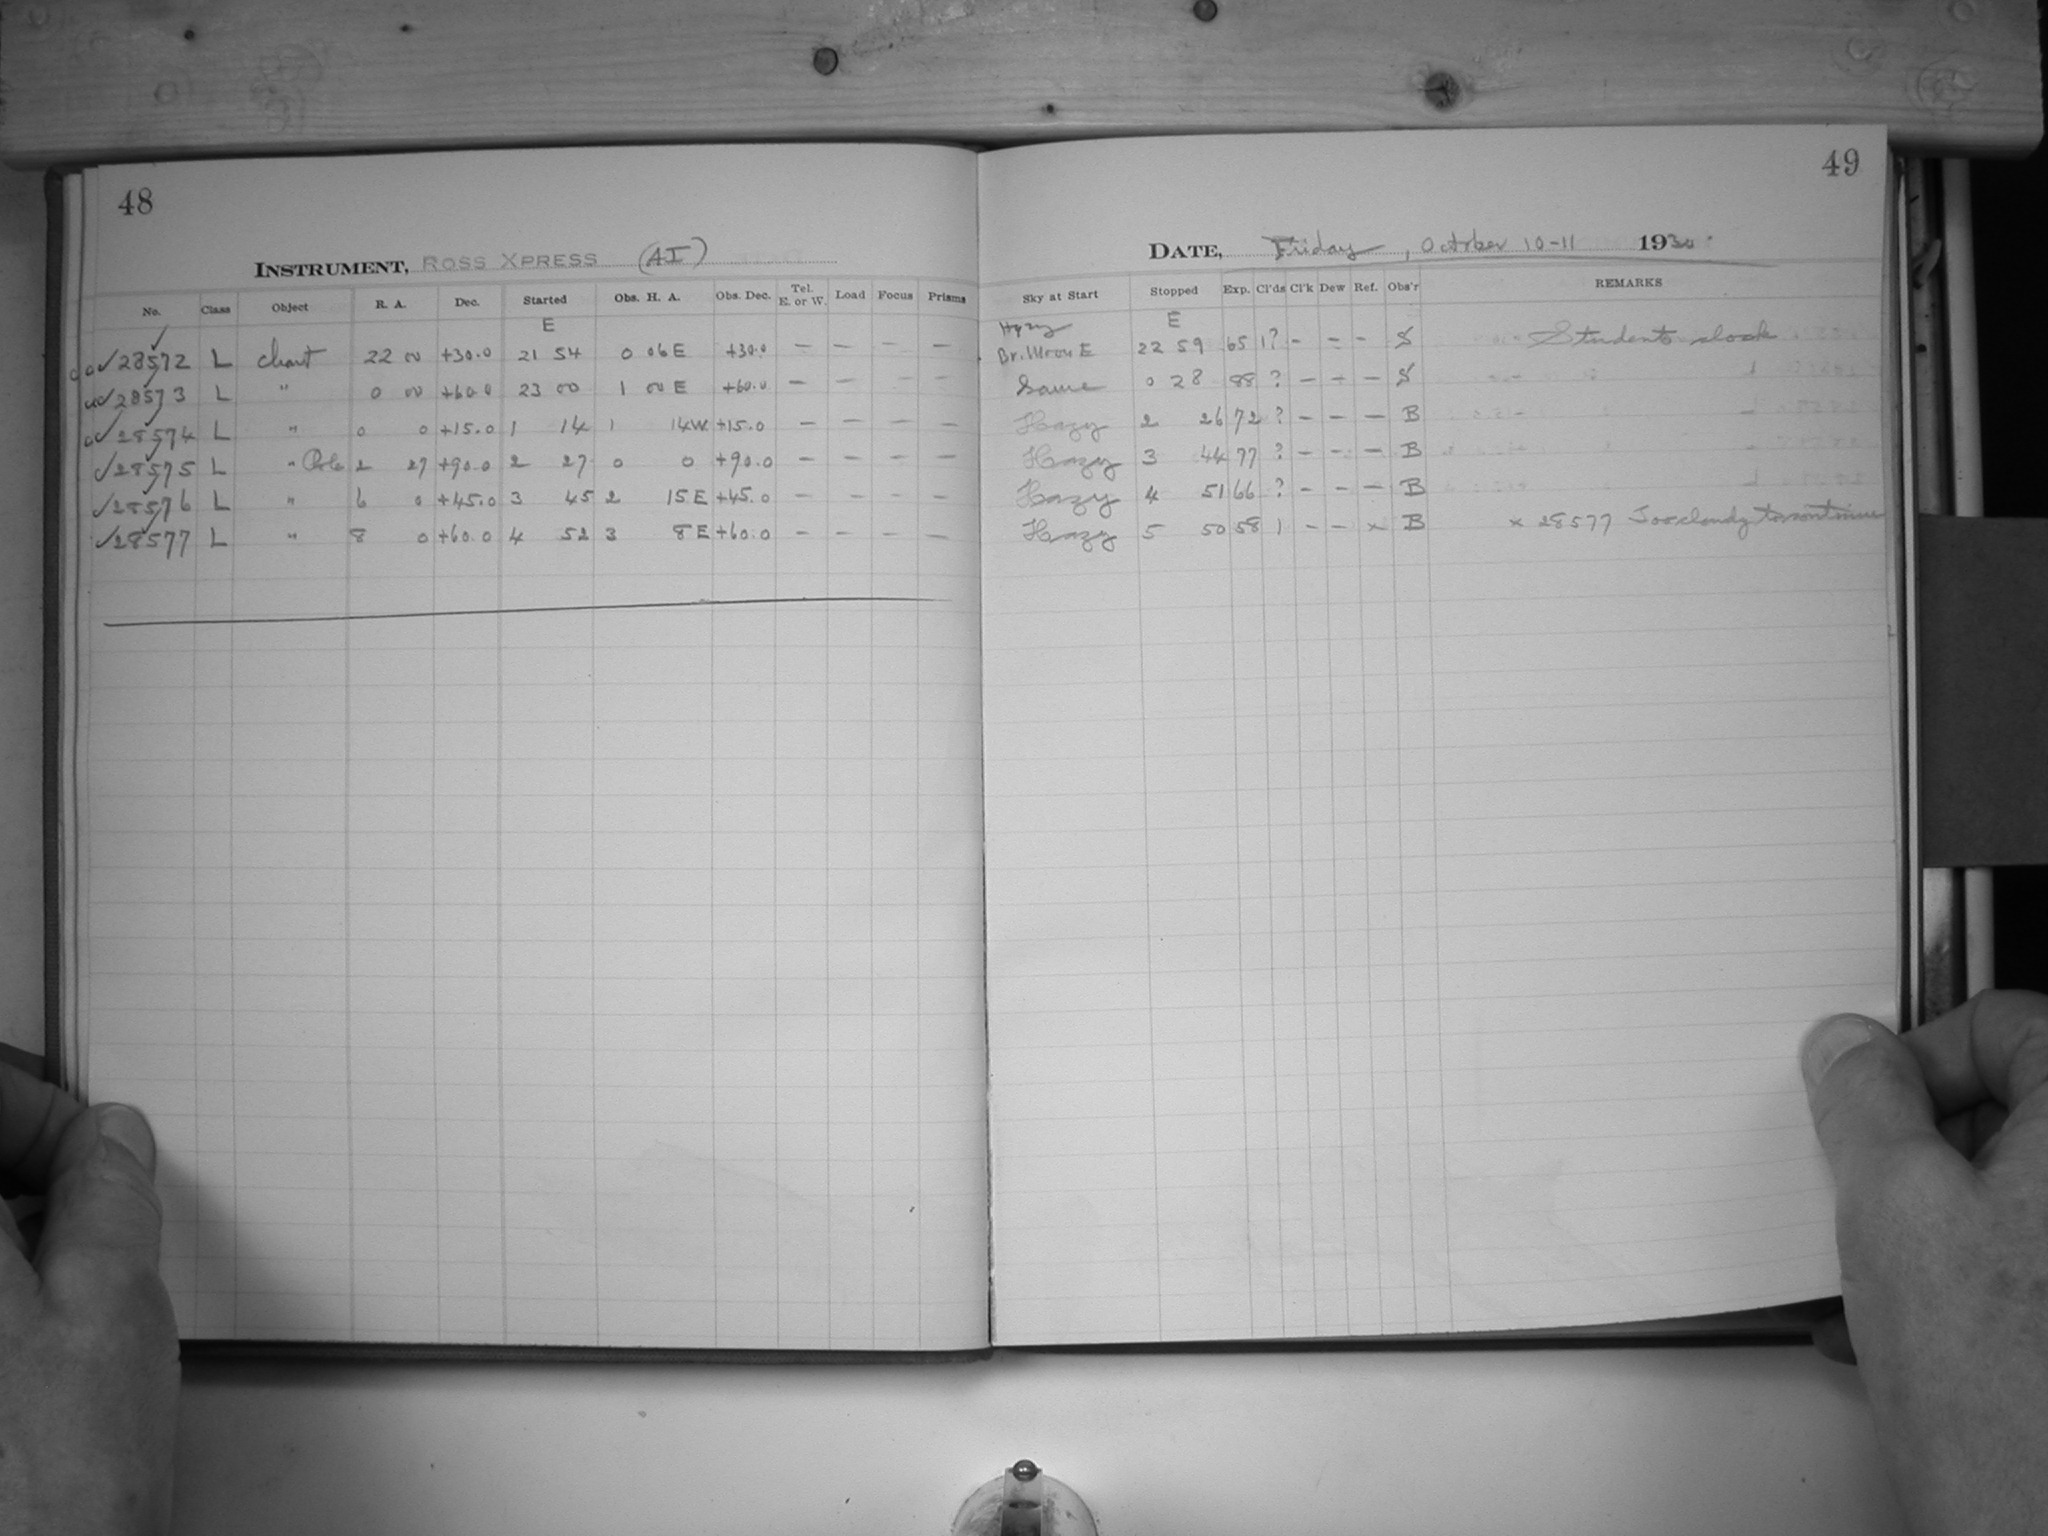 48
INSTRUMENT, ROSS XPRESS (AI)
No. Class Object R. A. Dec. Started Obs. H. A. Obs. Dec. Tel. E. or W. Load Focus Prisms
E
✓28572 L chart 22 00 +30.0 21 54 0 06 E +30.0 — — — —
✓28573 L " 0 00 +60.0 23 00 1 00 E +60.0 — — — —
✓28574 L " 0 0 +15.0 1 14 1 14W +15.0 — — — —
✓28575 L " Pole 2 27 +90.0 2 27 0 0 +90.0 — — — —
✓28576 L " 6 0 +45.0 3 45 2 15 E +45.0 — — — —
✓28577 L " 8 0 +60.0 4 52 3 8 E +60.0 — — — —
49
DATE, Friday, October 10-11 1930
Sky at Start Stopped Exp. Cl'ds Cl'k Dew Ref. Obs'r REMARKS
Hazy E
Br. Moon E 22 59 65 1? - - - S Students clock
Same 0 28 88 ? - - - S
Hazy 2 26 72 ? - - - B
Hazy 3 44 77 ? - - - B
Hazy 4 51 66 ? - - - B
Hazy 5 50 58 1 - - x B x 28577 Too cloudy to continue